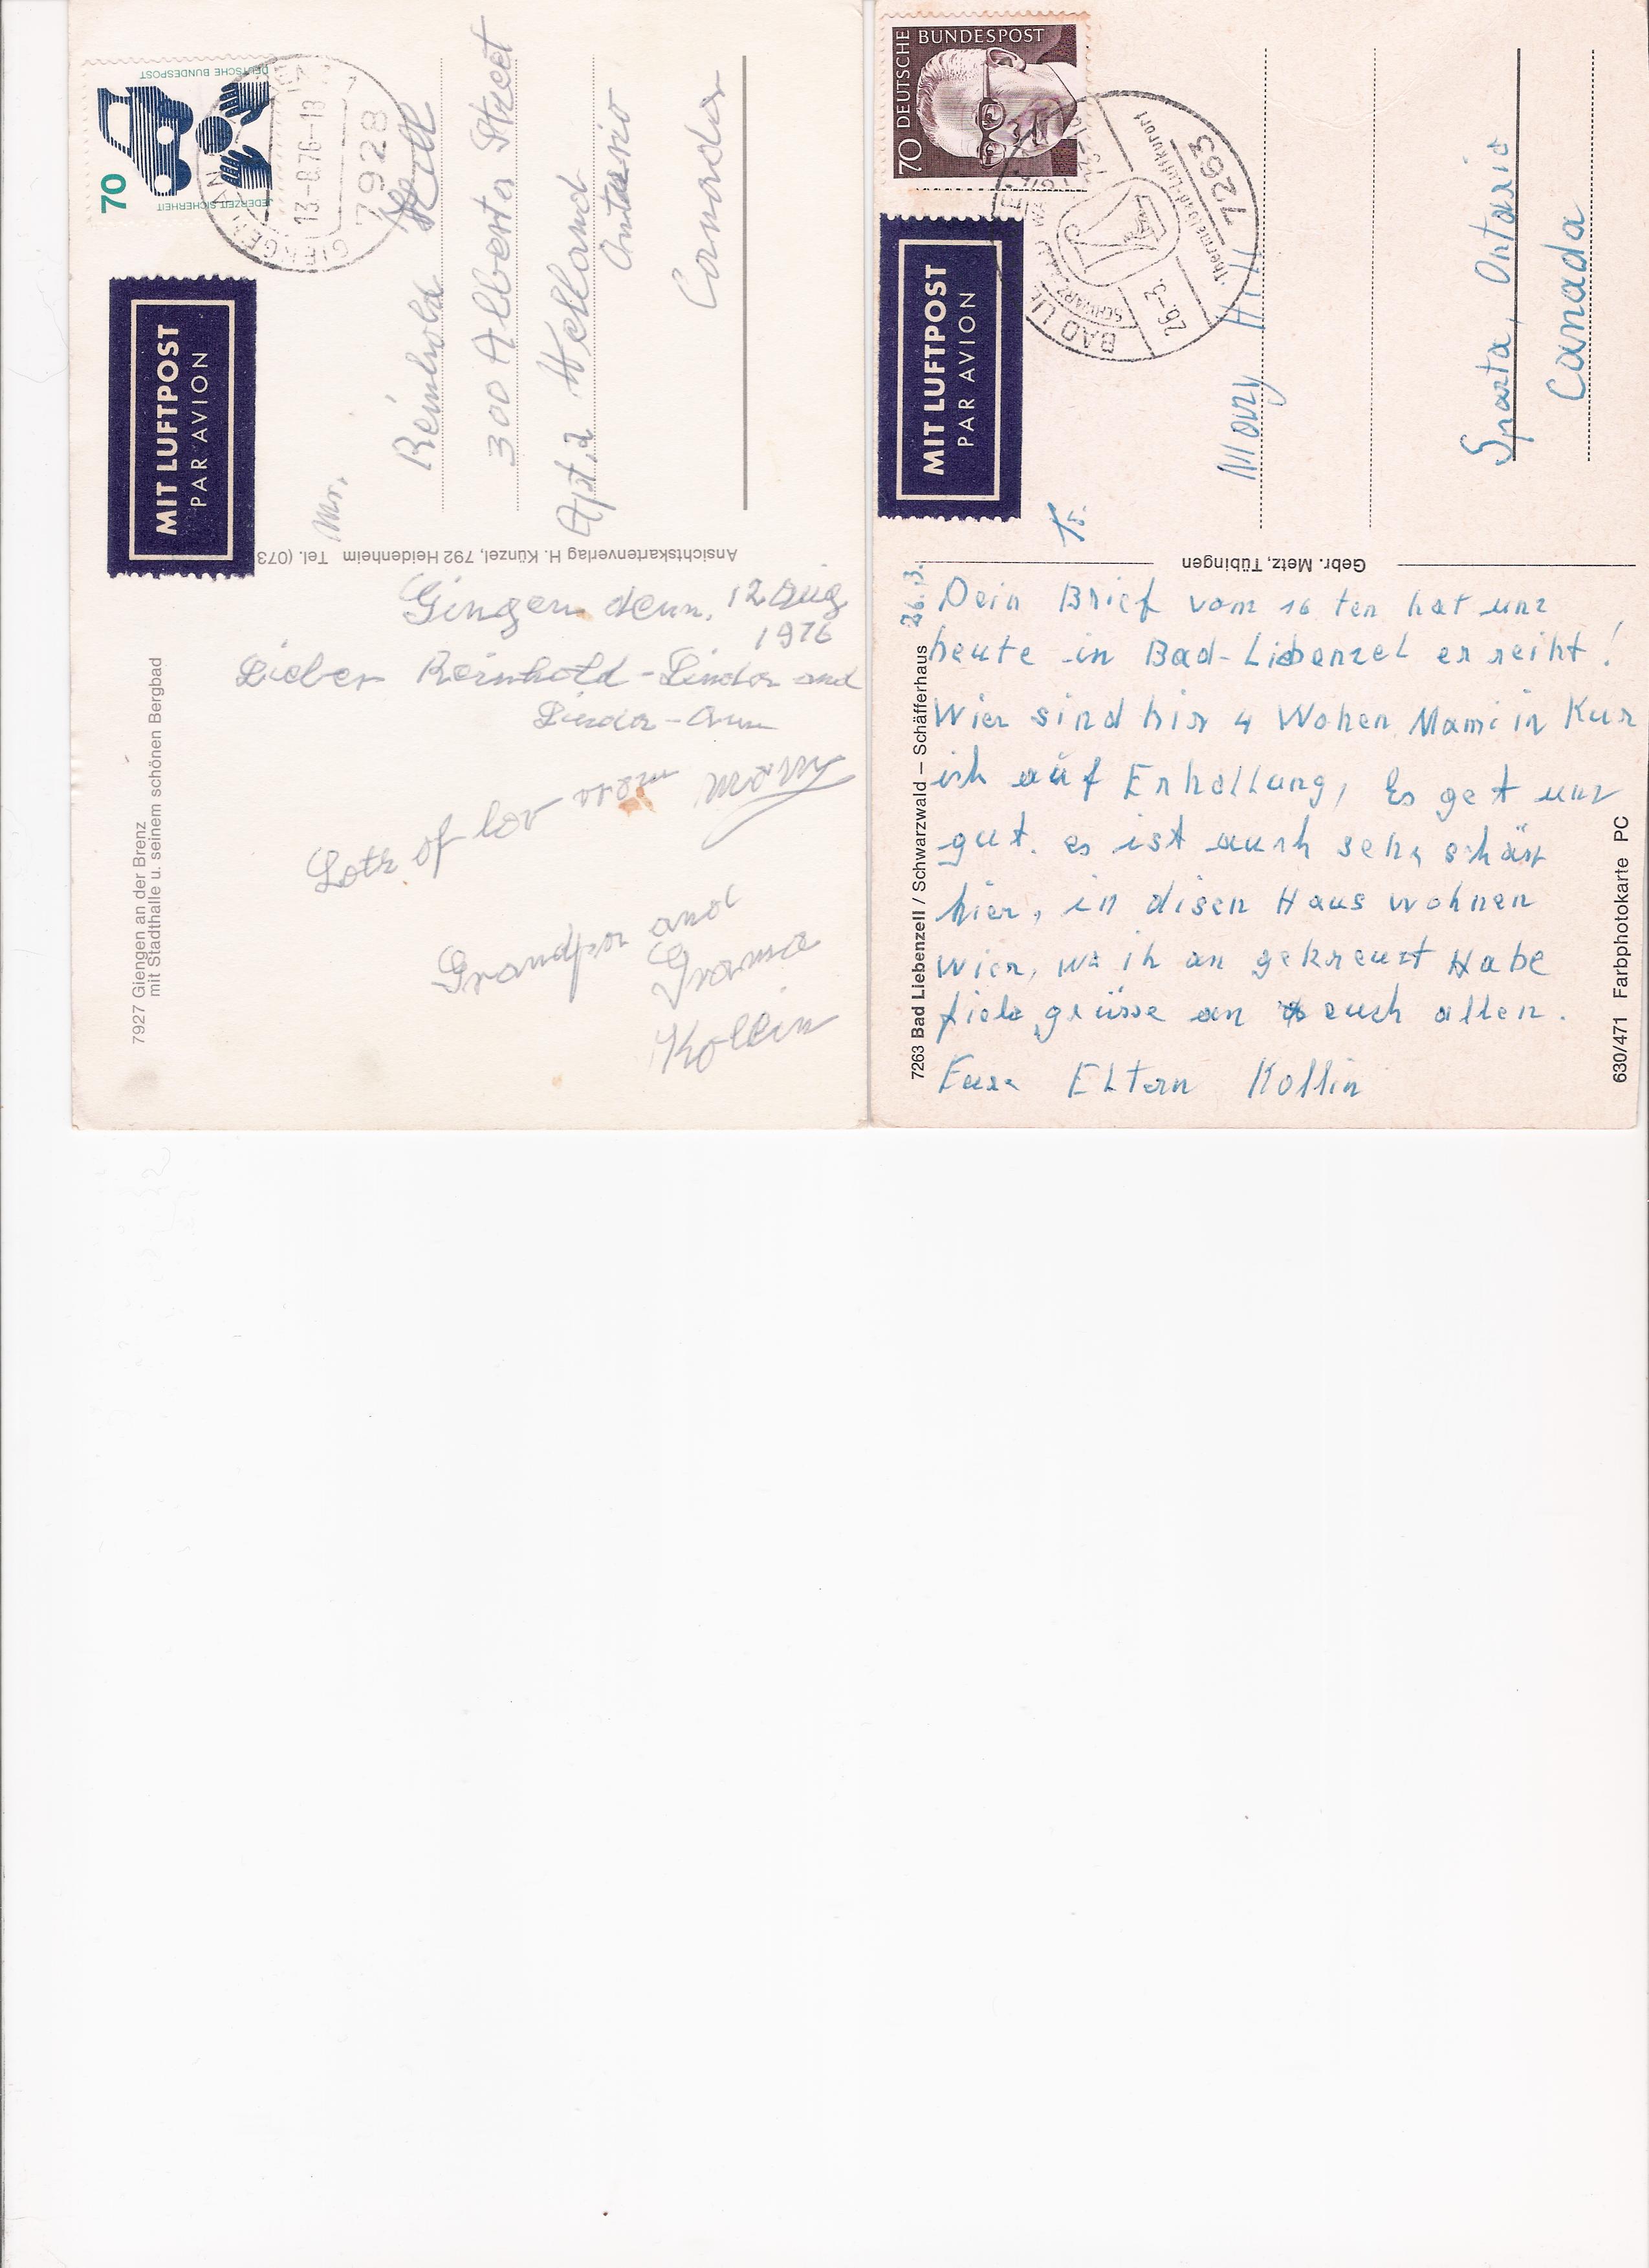 DEUTSCHE BUNDESPOST
JEDERZEIT SICHERHEIT
70
13.-8.76-18
7928
MIT LUFTPOST
PAR AVION
Mr.
Reinhold Hill
300 Alberta Street
Apt. 2 Welland
Ontario
Canada
Ansichtskartenverlag H. Künzel, 792 Heidenheim Tel. (073
7927 Giengen an der Brenz
mit Stadthalle u. seinem schönen Bergbad
Gingen denn. 12 Aug
1976
Lieber Reinhold - Linda and
Linda - Ann
Lots of lov vrom Mony
Grandpa and
Grama
Kollin
70 DEUTSCHE BUNDESPOST
BAD
26.-3.
Thermalbad Luftkurort
7263
MIT LUFTPOST
PAR AVION
To.
Mony Hill
Sparta, Ontario
Canada
Gebr. Metz, Tübingen
7263 Bad Liebenzell / Schwarzwald – Schäfferhaus
630/471 Farbphotokarte PC
26.3.
Dein Brief vom 16 ten hat unz
heute in Bad-Libenzel erreiht!
Wier sind hir 4 Wohen Mami in Kur
ich auf Erhollung, Es get unz
gut. es ist auch sehr schön
hier, in disen Haus wohnen
wier, wo ih an gekreuzt Habe
fiele grüsse an euch allen.
Eure Eltern Kollin